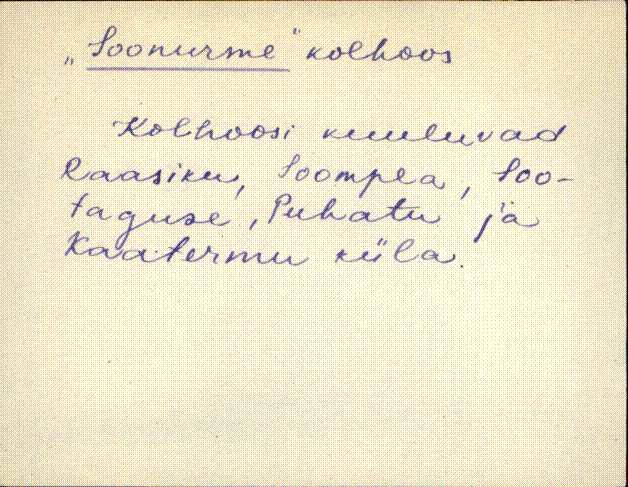 „Soonurme" kolhoos
Kolhoosi kuuluvad
Raasiku, Soompea, Soo-
taguse, Puhatu ja
Kaatermu küla.